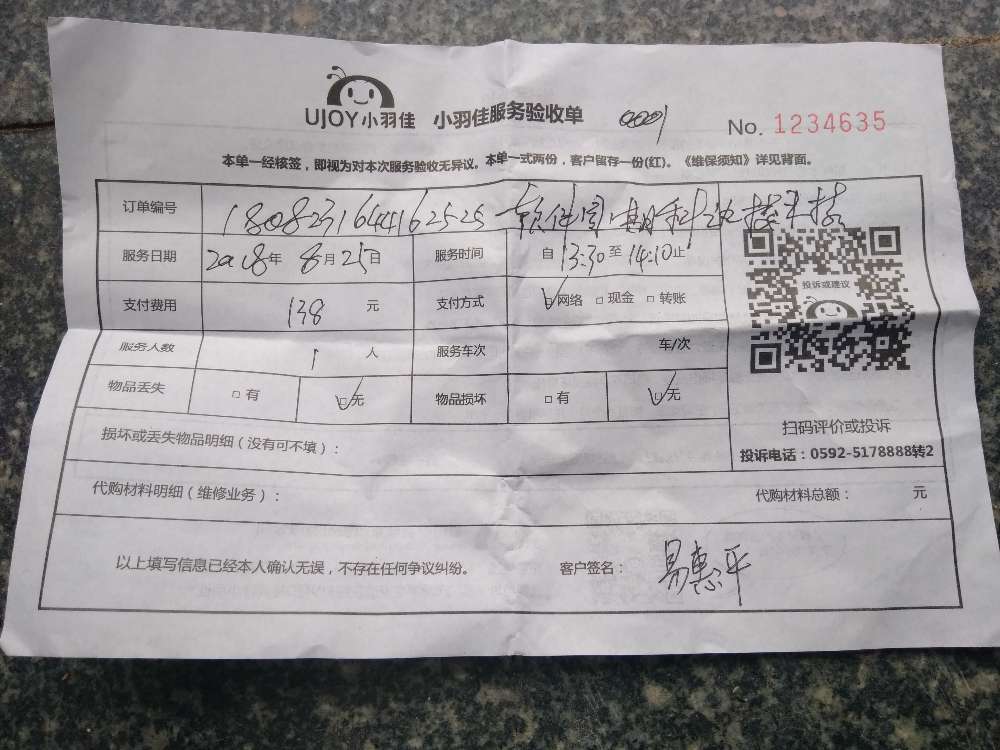 UJOY小羽佳 小羽佳服务验收单
No. 1234635
本单一经核签，即视为对本次服务验收无异议。本单一式两份，客户留存一份(红)。《维保须知》详见背面。
订单编号 180823164416 2525 软件园
服务日期 2018年 8月25日 服务时间 自 13:30 至 14:10 止
支付费用 138 元 支付方式 ☑网络 □现金 □转账
服务人数 1 人 服务车次 车/次
物品丢失 □有 ☑无 物品损坏 □有 ☑无
损坏或丢失物品明细（没有可不填）：
投诉或建议
扫码评价或投诉
投诉电话：0592-5178888转2
代购材料明细（维修业务）： 代购材料总额： 元
以上填写信息已经本人确认无误，不存在任何争议纠纷。 客户签名： 易惠平